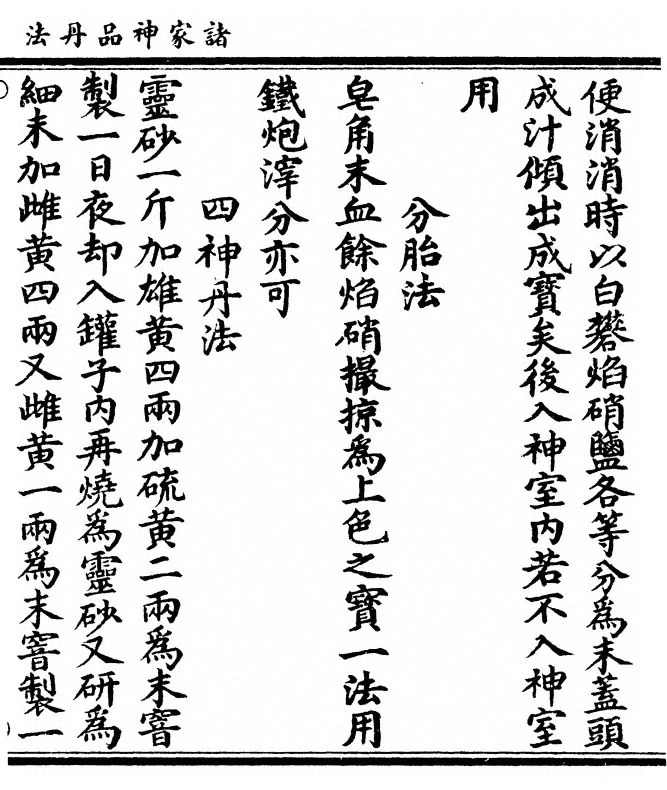 諸家神品丹法
便消消時以白礬焰硝鹽各等分為末蓋頭
成汁傾出成寶矣後入神室内若不入神室
用
分胎法
皂角末血餘焰硝撮掠為上色之寶一法用
鐵炮滓分亦可
四神丹法
靈砂一斤加雄黄四兩加硫黄二兩為末窨
製一日夜却入罐子内再燒為靈砂又研為
細末加雌黄四兩又雌黄一兩為末窨製一